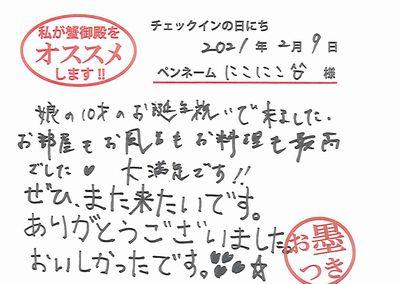 私が蟹御殿を
オススメ
します!!
チェックインの日にち
2021年2月9日
ペンネーム にこにこ谷 様
娘の10才のお誕生祝いで来ました.
お部屋もお風呂もお料理も最高
でした♥ 大満足です!!
ぜひ、また来たいです。
ありがとうございました。
おいしかったです。♥♥♥☆
お墨
つき